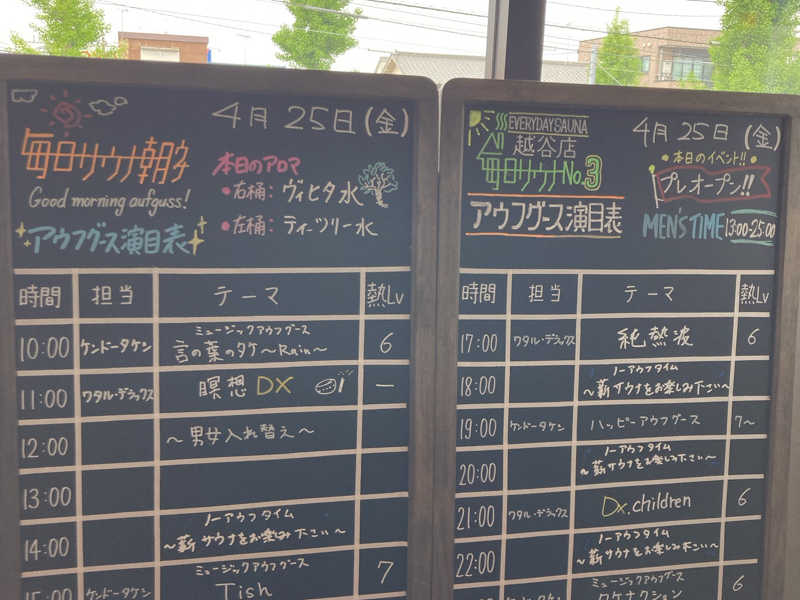 毎日サウナ朝子
Good morning aufguss!
アウフグース演目表
4月 25日 (金)
本日のアロマ
・右桶: ヴィヒタ水
・左桶: ティーツリー水
時間 担当 テーマ 熱Lv
10:00 ケンドータケン ミュージックアウフグース 6
言の葉のタケ〜Rain〜
11:00 ワタル・デラックス 瞑想 DX ー
12:00 〜男女入れ替え〜
13:00
14:00 ノーアウフタイム
〜薪サウナをお楽しみ下さい〜
15:00 ケンドータケン ミュージックアウフグース 7
Tish
EVERYDAY SAUNA
越谷店
毎日サウナNo.3
アウフグース演目表
4月 25日 (金)
・本日のイベント!!・
プレオープン!!
MEN'S TIME 13:00-25:00
時間 担当 テーマ 熱Lv
17:00 ワタル・デラックス 純熱波 6
18:00 ノーアウフタイム
〜薪サウナをお楽しみ下さい〜
19:00 ケンドータケン ハッピーアウフグース 7〜
20:00 ノーアウフタイム
〜薪サウナをお楽しみ下さい〜
21:00 ワタル・デラックス Dx.children 6
22:00 ノーアウフタイム
〜薪サウナをお楽しみ下さい〜
ミュージックアウフグース 6